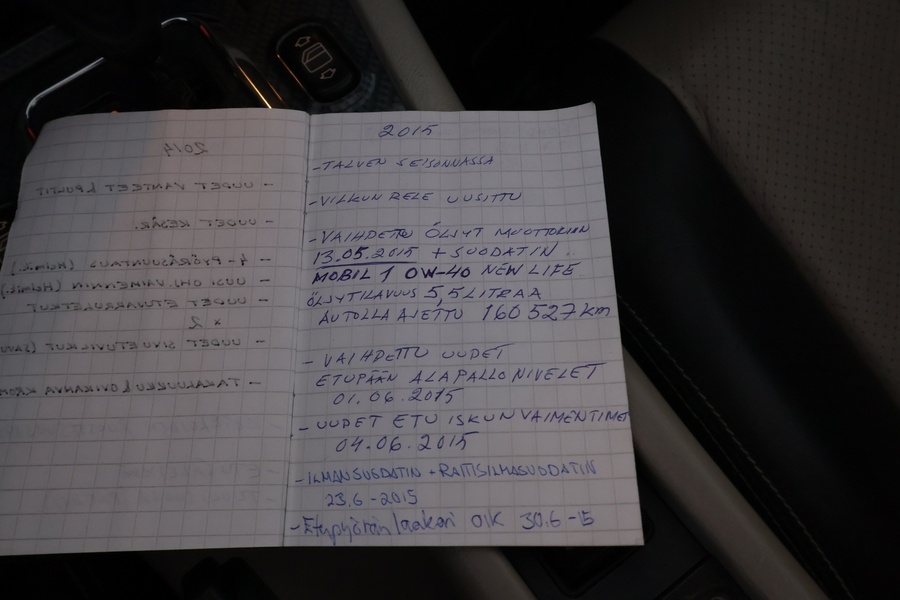 2014
- UUDET VANTEET & PULTIT
- UUDET KESÄR.
- 4-PYÖRÄSUUNTAUS (HELMIK.)
- UUSI OHJ.VAIMENNIN (HELMIK.)
- UUDET
x 2
- UUDET SIVUETUVILKUT (SAVU
- TAKALUUKKU & OVIKAHVA KROM
2015
-TALVEN SEISONNASSA
-VILKUN RELE UUSITTU
-VAIHDETTU ÖLJYT MOOTTORIIN
13.05.2015 + SUODATIN.
MOBIL 1 0W-40 NEW LIFE
ÖLJYTILAVUUS 5,5 LITRAA
AUTOLLA AJETTU 160 527 km
- VAIHDETTU UUDET
ETUPÄÄN ALAPALLONIVELET
01.06.2015
- UUDET ETU ISKUNVAIMENTIMET
04.06.2015
-ILMANSUODATIN + RAITISILMASUODATIN
23.6-2015
-Etupyörän laakeri OIK 30.6-15